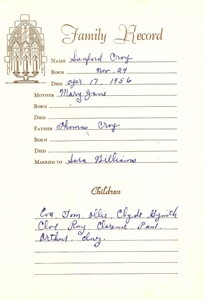 Family Record
Name Sanford Croy
Born Nov. 24
Died Apr 17, 1956
Mother Mary Jane
Born
Died
Father Thomas Croy
Born
Died
Married to Sara Williams
Children
Eva, Tom, Ollie, Clyde,
Ray, Clarence, Paul
Arthur,